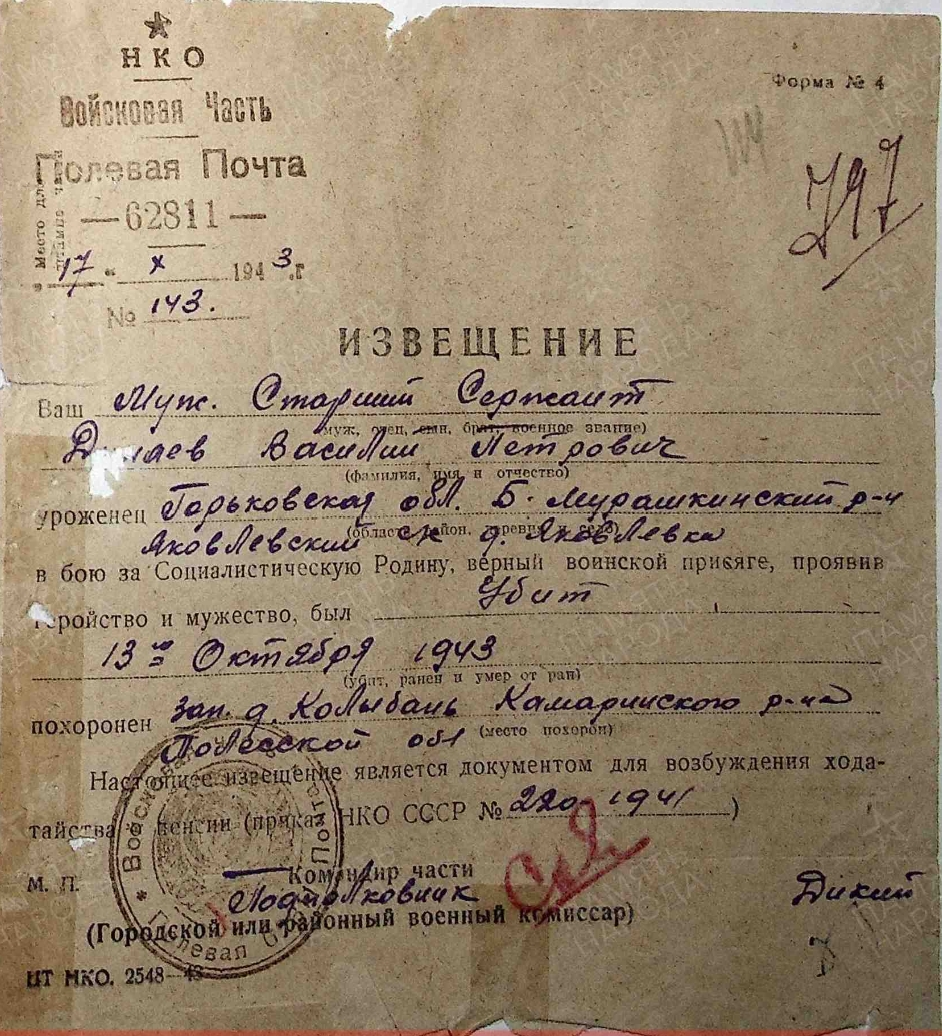 НКО
Войсковая Часть
Полевая Почта
—62811—
Место для
штампа части
Форма № 4
797
"17" X 1943.г
№ 143.
ИЗВЕЩЕНИЕ
Ваш Муж. Старший Сержант
(муж, отец, сын, брат, военное звание)
Василий Петрович
(фамилия, имя и отчество)
уроженец Горьковская обл. Б-Мурашкинский р-н
(область, район, деревня и село)
Яковлевский с/с д. Яковлевка
в бою за Социалистическую Родину, верный воинской присяге, проявив
геройство и мужество, был Убит
13го Октября 1943
(убит, ранен и умер от ран)
похоронен зап. д. Колыбань Камаринского р-на
Полесской обл (место похорон)
Настоящее извещение является документом для возбуждения хода-
тайства о пенсии (приказ НКО СССР № 220-1941)
Командир части
М. П. Подполковник Дикий
(Городской или районный военный комиссар)
Войсковая часть
Полевая почта
МКО. 2548—43